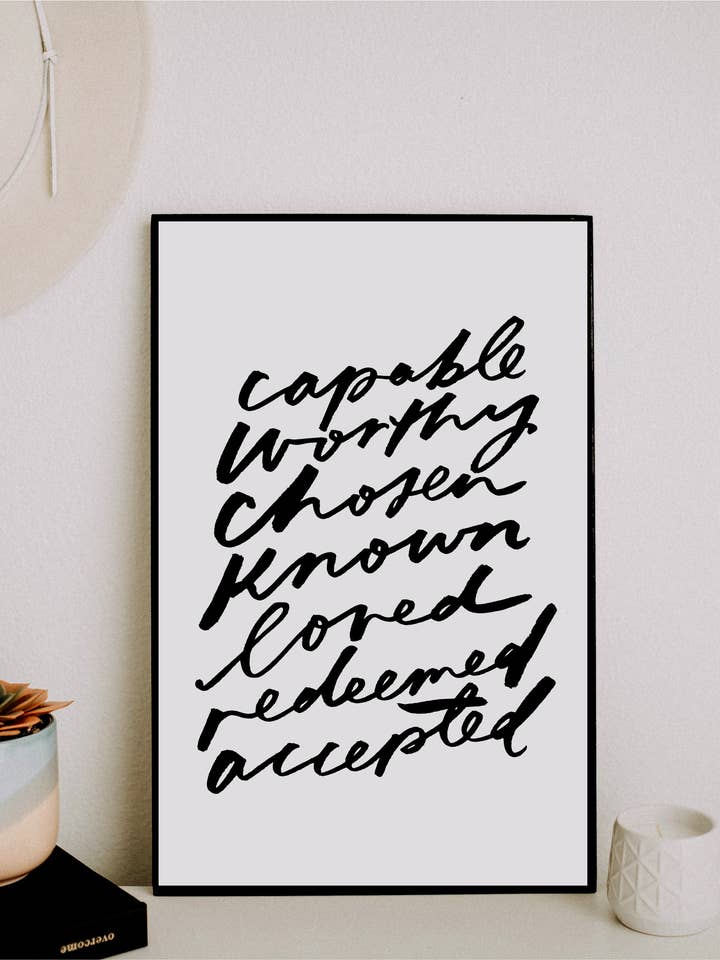 capable
worthy
chosen
known
loved
redeemed
accepted
overcome